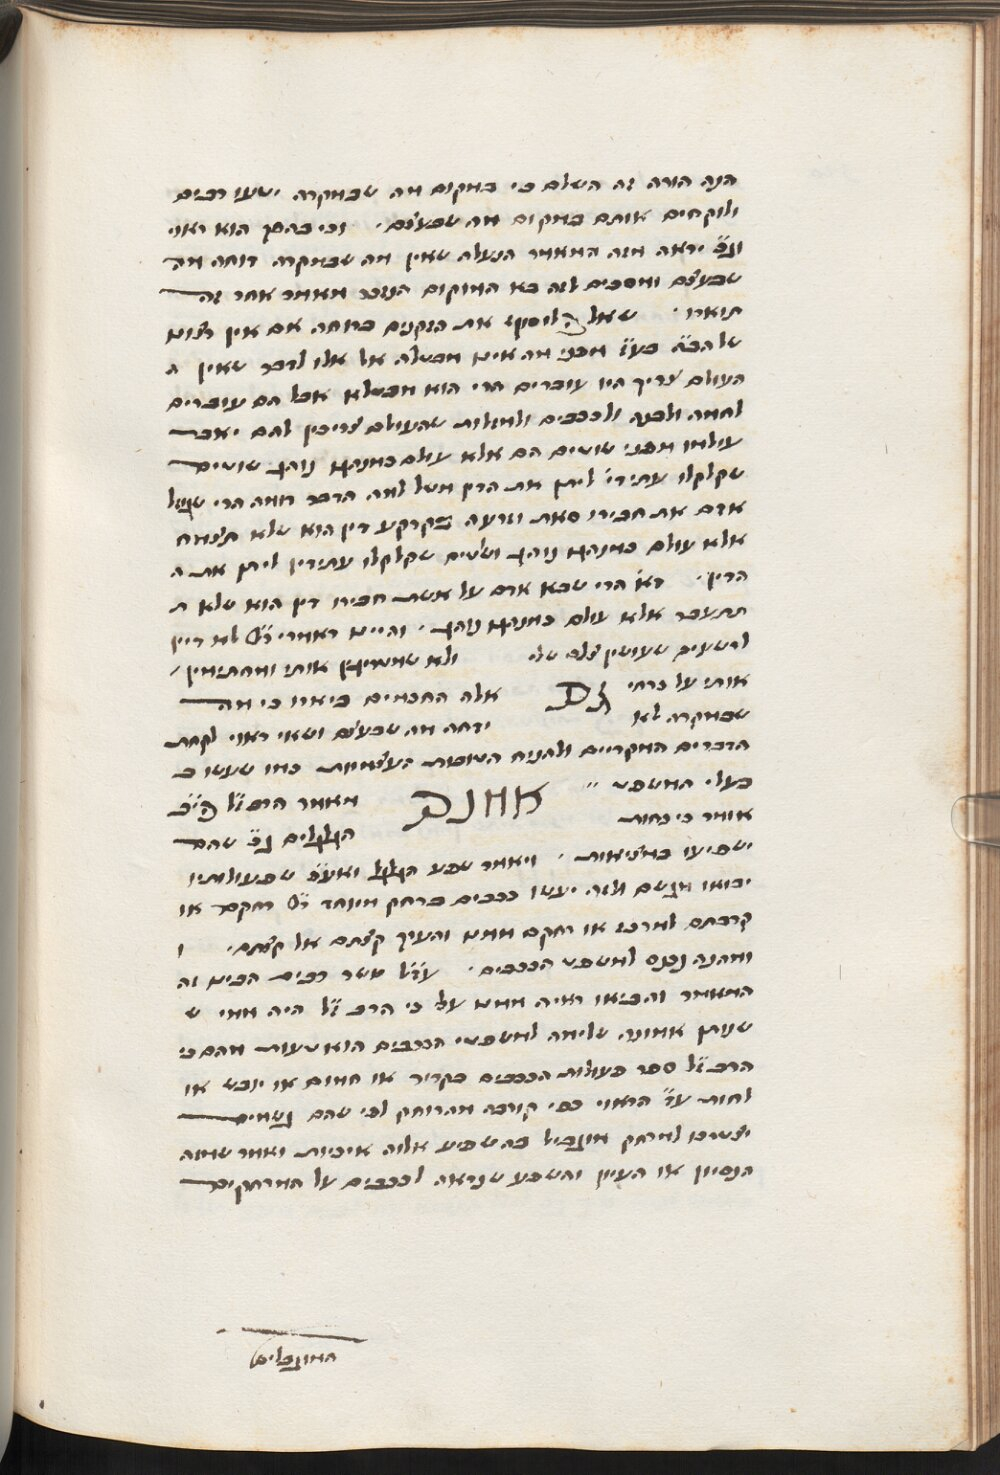 הנה הורה זה השלם כי במקום מה שבמקרה ישעו רבים
ולוקחים אותם במקום מה שבעצם · וכי בהפך הוא ראוי
וגם יראה מזה המאמר הנעלה שאין מה שבמקרה דוחה מה
שבעצם ומסכים לזה בא המקום הנזכר מאמר אחר זה
תוארו · שאל פלוסוף את הזקנים ברומה אם אין רצונו
של הב״ה בע״ז מפני מה אינו מבטלה אל אלו לדבר שאין ה
העולם צריך היו עובדים הרי הוא מבטלא אבל הם עובדים
לחמה ולבנה ולככבים ולמזלות שהעולם צריכין להם יאבד
עולמו מפני שוטים הם אלא עולם כמנהגו נוהג ושוטים
שקלקלו עתידי׳ ליתן את הדין משל למה הדבר דומה הרי שגזל
אדם את חבירו סאת וזרעה בקרקע דין הוא שלא תצמח
אלא עולם כמנהגו נוהג ושוטים שקלקלו עתידין ליתן את ה
הדין · ד״א הרי שבא אדם על אשת חבירו דין הוא שלא ת
תתעבר אלא עולם כמנהגו נוהג · והיינו דאמרי׳ לא דיין
לרשעים שעושין סלע שלי ולא שמטריחין אותי ומחתימין
אותי על כרחי גם אלה החכמים ביארו כי מה
שבמקרה לא ידחה מה שבעצם ושאין ראוי לקחת
הדברים המקריים ולהניח הטובות העצמיות כמו שעשו ב
בעלי המשפט ״ אמנם מאמר הרב ז״ל
אומר כי כחות הגלגלים גם שהם
ישפיעו במציאות · ויאמר שפע הגלגל ואע״פ שפעולותיו
יבואו מגשם ולזה יעשו ככבים ברחק מיוחד ר״ל רחקם או
קרבתם למרכז או רחקם ממנו והערך קצתם אל קצתם · ו
ומהנה נכנס למשפטי הככבים · עכ״ל אשר רבים הבינו זה
המאמר והביאו ראיה ממנו על כי הרב ז״ל היה ממי ש
שנותן אמונה שלימה למשפטי הככבים הוא טעות מהם כי
הרב ז״ל ספר פעולות הככבים בקריר או חמום או יובש או
לחות ע״ד הראוי כפי קורבה מהרוחק לפי שהם גשמים
יצטרכו למרחק מוגביל בהשפיע אלה איכיות ואמר שמזה
הנסיון או העיון והשפע שנראה לככבים על המרחקים
המוגבלים